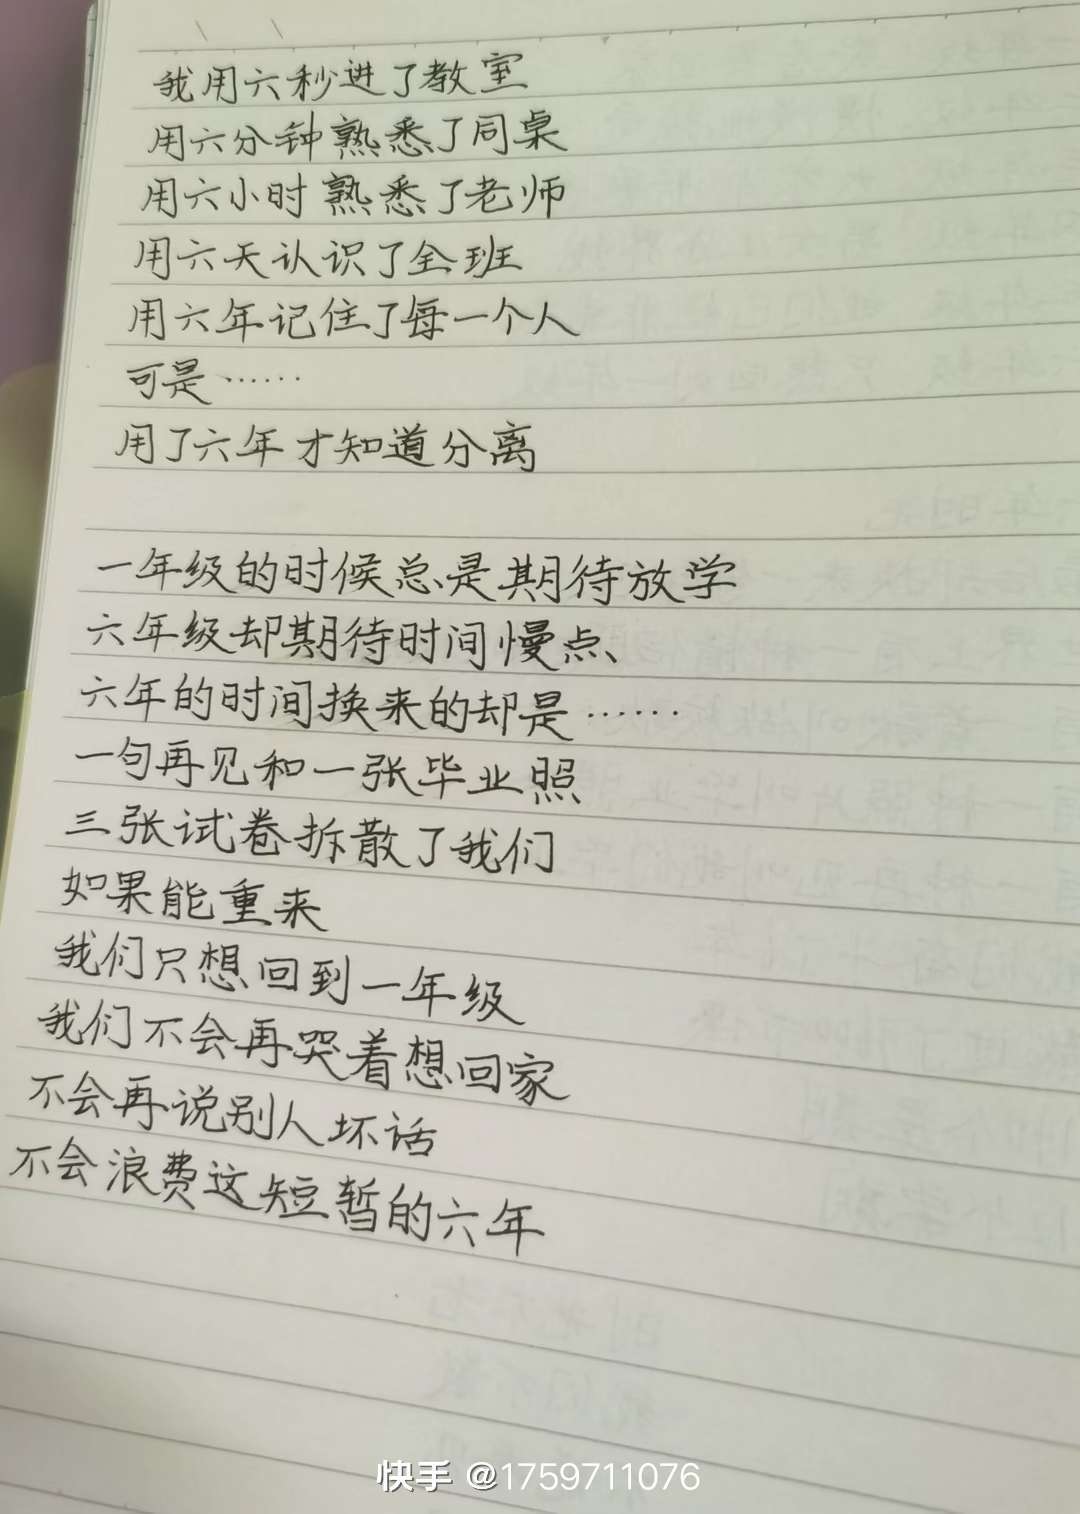 我用六秒进了教室
用六分钟熟悉了同桌
用六小时熟悉了老师
用六天认识了全班
用六年记住了每一个人
可是……
用了六年才知道分离
一年级的时候总是期待放学
六年级却期待时间慢点、
六年的时间换来的却是……
一句再见和一张毕业照
三张试卷拆散了我们
如果能重来
我们只想回到一年级
我们不会再哭着想回家
不会再说别人坏话
不会浪费这短暂的六年
快手 @1759711076